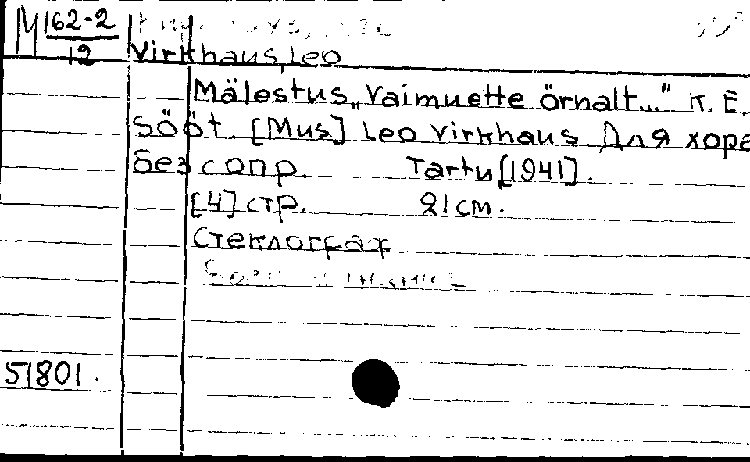 М 162-2
12
Virkhaus, Leo
Mälestus „Vaimuette õrnalt..." K. E.
Sööt. [Mus] Leo Virkhaus Для хора
без сопр. Tartu [1941].
[4] стр. 21 см.
Стеклограф
51801.